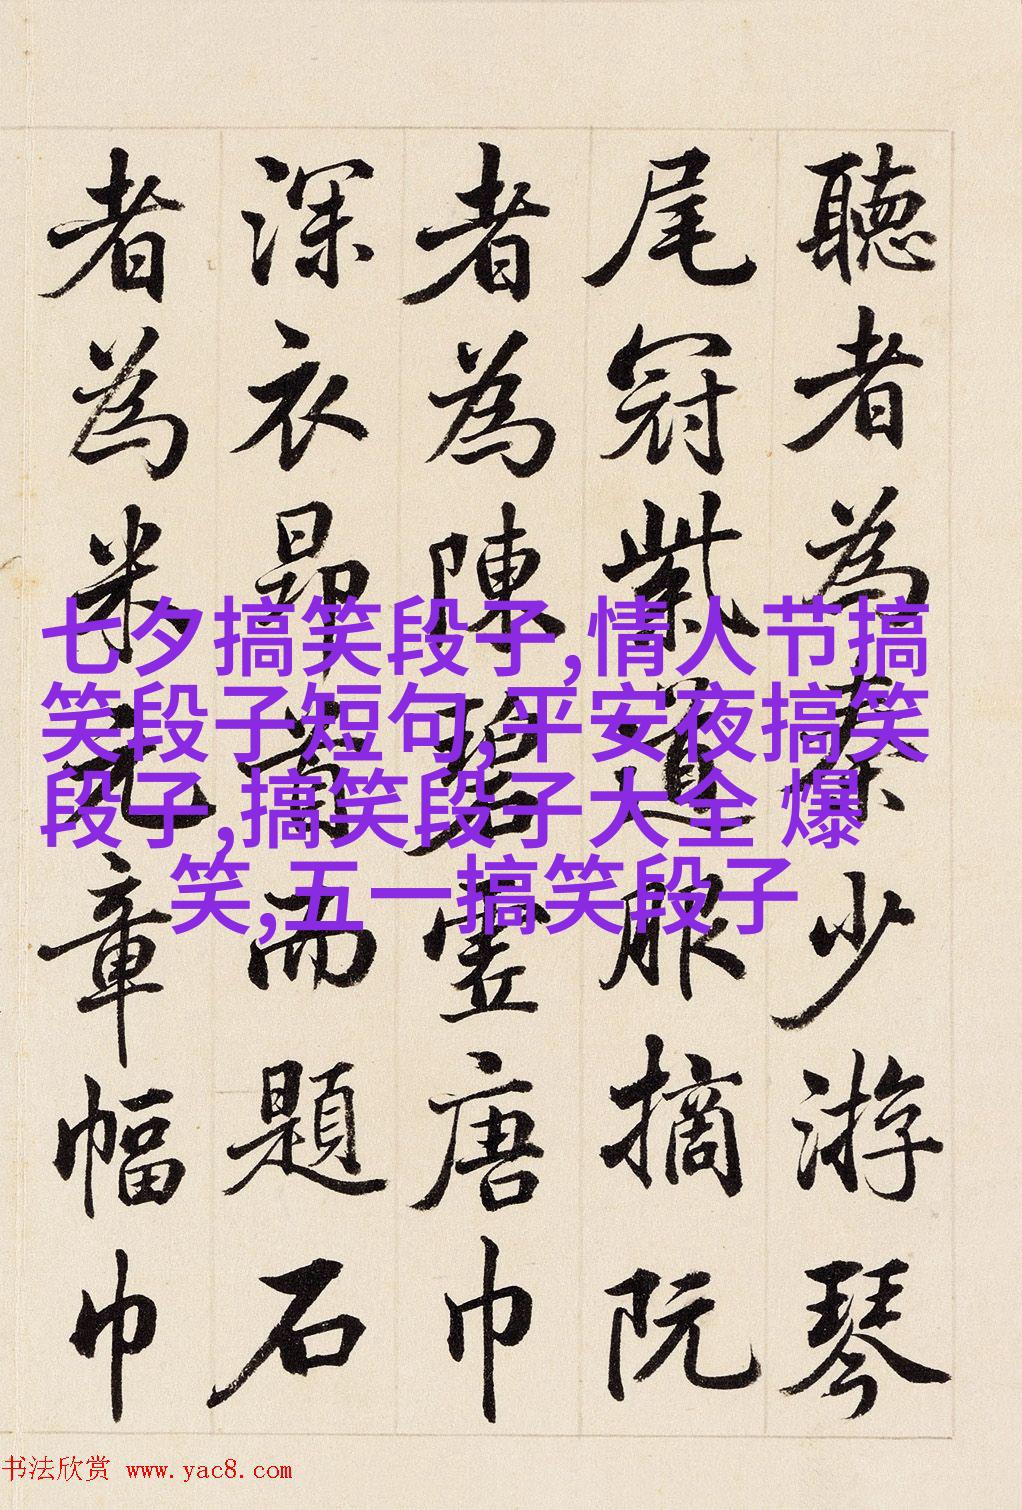 聽者為秦少游琴
尾冠紫道服摘阮
者為陳碧虛唐巾
深衣昂首而題石
者為米元章幅巾
七夕搞笑段子,情人节搞
笑段子短句,平安夜搞笑
段子,搞笑段子大全 爆
笑,五一搞笑段子
书法欣赏 www.yac8.com